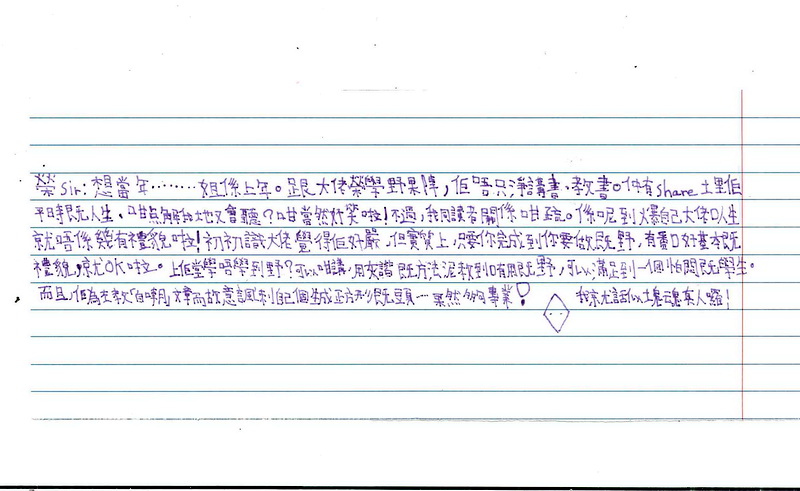 榮Sir：想當年………姐係上年。跟大佬榮學野果陣，佢唔只淨講書、教書。仲有share土里佢
平時既人生、咁點解地地又會聽？咁當然好笑啦！不過，我同讀者關係咁疏。係呢到爆自己大佬D人生
就唔係幾有禮貌啦！初初識大佬覺得佢好嚴，但實質上，只要你完成到你要做既野，有番D好基本既
禮貌，就OK啦。上佢堂學唔學到野？可以咁講，用灰諧既方法泥教到D有用既野，可以滿足到一個怕悶既學生。
而且，佢為左教「自嘲」文章而故意諷刺自己個 正方形既頭…果然夠專業！